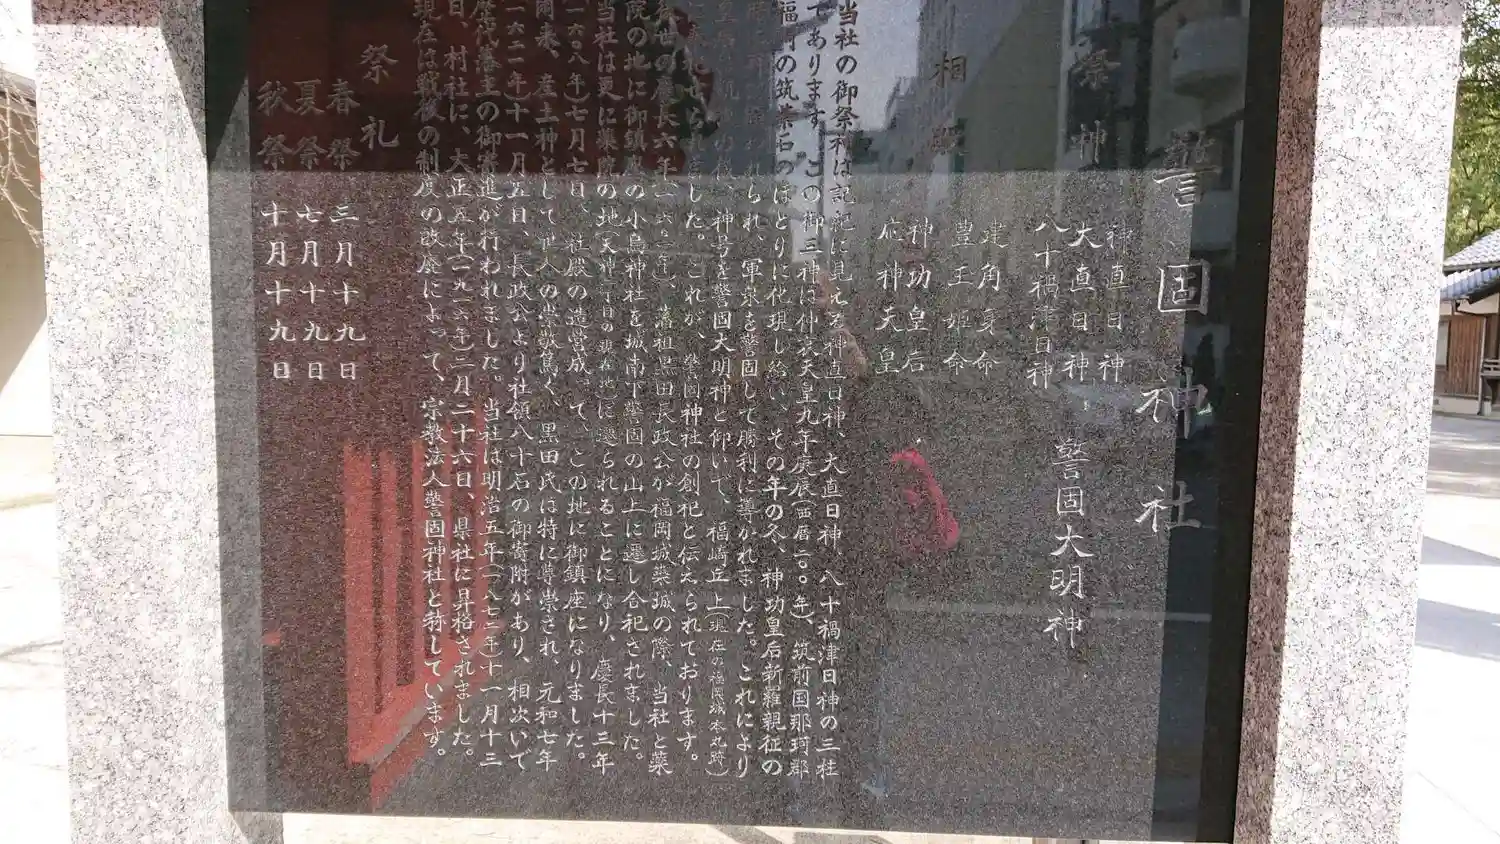 警固神社
祭神
神直日神
大直日神
八十禍津日神
警固大明神
相殿
建角身命
豊玉姫命
神功皇后
応神天皇
当社の御祭神は記紀に見える神直日神、大直日神、八十禍津日神の三柱
であります。この御三神は仲哀天皇九年庚辰(西暦二〇〇年)、筑前国那珂郡
福岡の筑紫石のほとりに化現し給い、その年の冬、神功皇后新羅親征の
られ、軍衆を警固して勝利に導かれました。これにより
神号を警固大明神と仰いで、福崎丘上(現在の福岡城本丸跡)
した。これが、警固神社の創祀と伝えられております。
世の慶長六年(一六〇一年)、藩祖黒田長政公が福岡城築城の際、当社と薬
院の地に御鎮座の小烏神社を城南下警固の山上に遷し合祀されました。
当社は更に薬院の地(天神丁目の現在地)に遷られることになり、慶長十三年
一六〇八年)七月七日、社殿の造営成って、この地に御鎮座になりました。
爾来、産土神として世人の崇敬篤く、黒田氏は特に尊崇され、元和七年
一六二一年)十一月五日、長政公より社領八十石の御寄附があり、相次いで
歴代藩主の御寄進が行われました。当社は明治五年(一八七二年)十一月十三
日、村社に、大正五年(一九一六年)三月二十六日、県社に昇格されました。
現在は戦後の制度の改廃によって、宗教法人警固神社と称しています。
祭礼
春祭 三月十九日
夏祭 七月十九日
秋祭 十月十九日